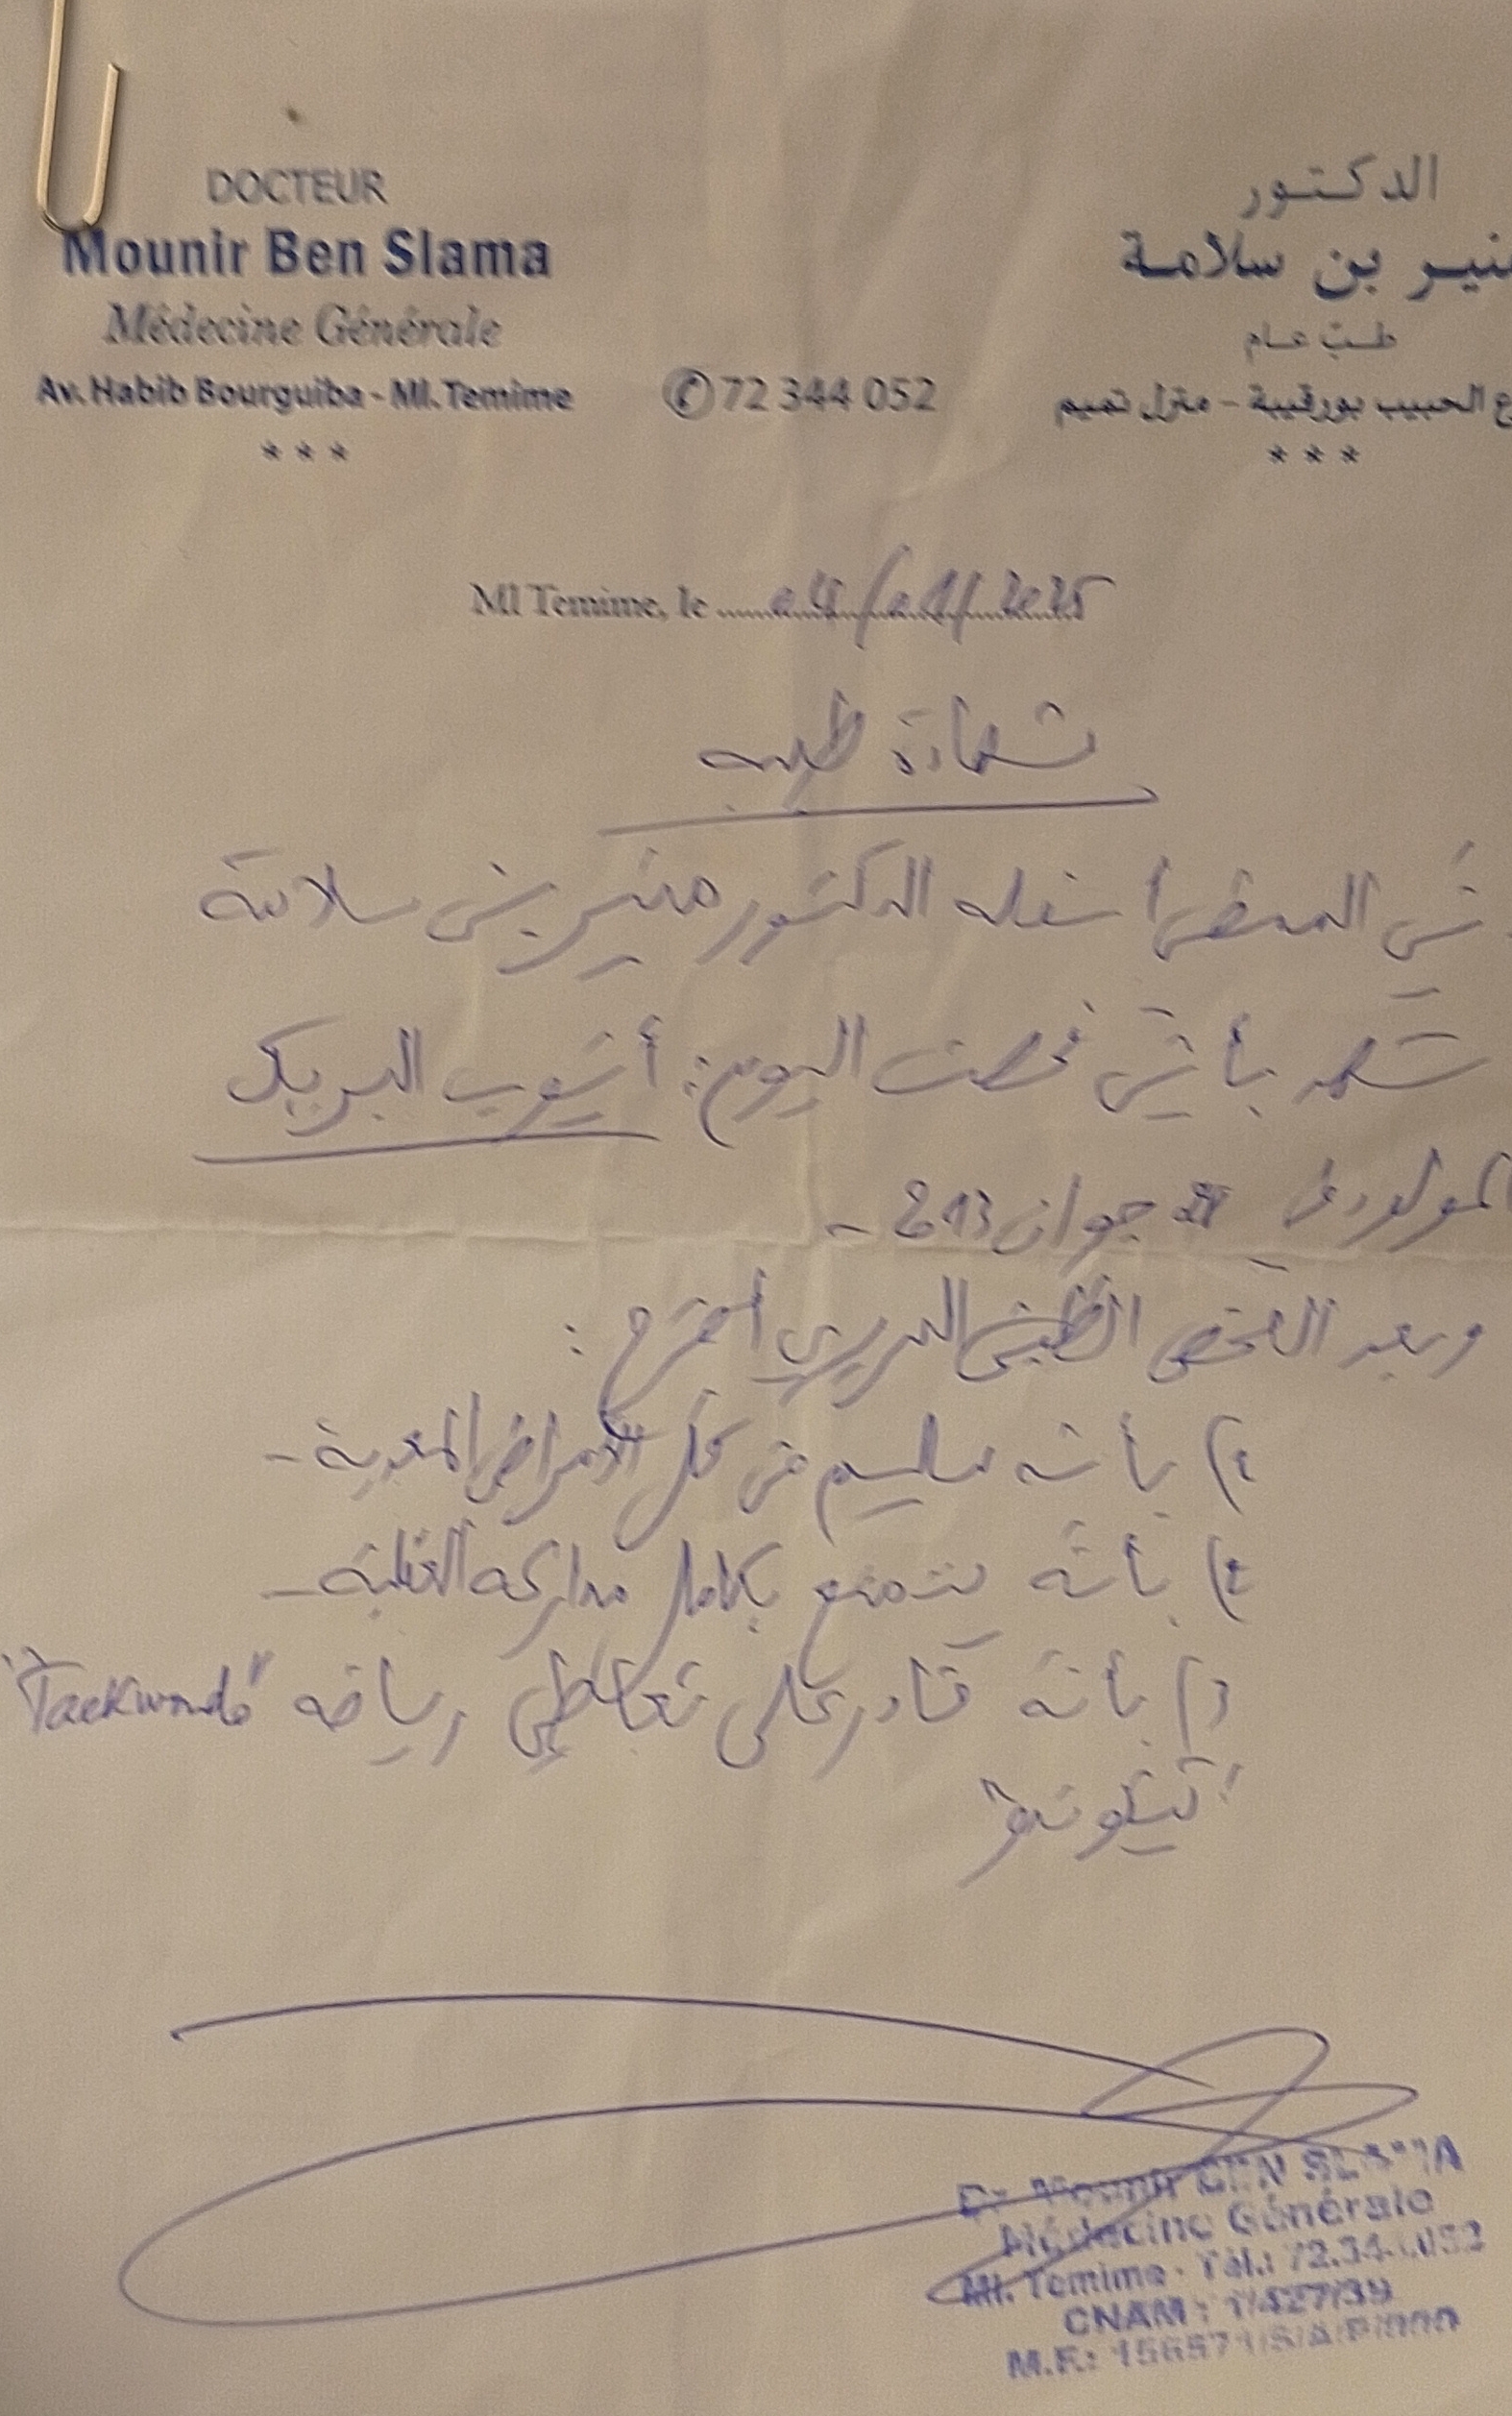 DOCTEUR
Mounir Ben Slama
Médecine Générale
Av. Habib Bourguiba - Ml. Temime
* * *
✆ 72 344 052
الدكتور
منير بن سلامة
طب عام
الحبيب بورقيبة - منزل تميم
* * *
Ml Temime, le
شهادة طبية
إني الممضي أسفله الدكتور منير بن سلامة
أشهد بأني فحصت اليوم: أيوب البريك
المولود في جوان 2013 -
وبعد الفحص الطبي السريري أصرح :
1) بأنه سليم من كل الأمراض المعدية -
2) بأنه يتمتع بكامل مداركه العقلية -
3) بأنه قادر على تعاطي رياضة "Taekwondo"
"تيكوندو"
Dr Mounir BEN SLAMA
Médecine Générale
Ml. Temime - Tél.: 72.344.052
CNAM : 1/427/39
M.F.: